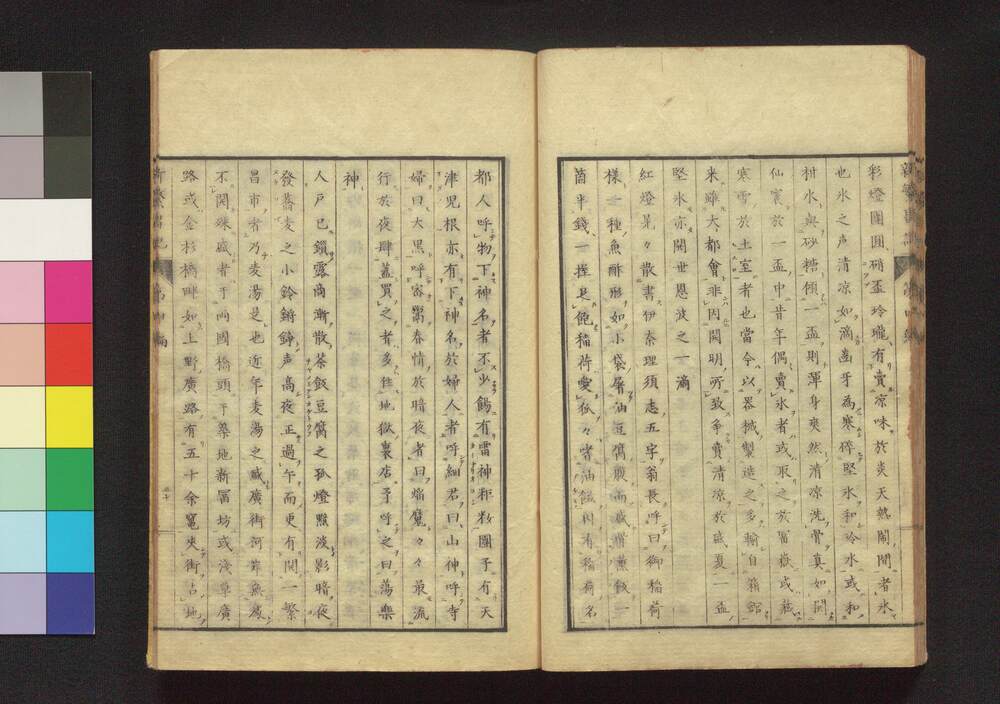 彩燈團圓硝盃玲瓏有賣凉味於炎天熱閙閙者氷
也氷之声清凉如滴齒牙為寒碎堅氷和冷水或和
柑水與砂糖傾一盃則渾身爽然清凉洗骨真如開
仙寰於一盃中昔年偶賣氷者或取之於冨嶽或藏
寒雪於土室者也當今以器械製造之多輸自箱館
来雖大都會非因開明所致争賣清凉於盛夏一盃
堅氷亦開世恩波之一滴
紅燈是々散書伊奈理須志五字翁長呼曰御稲荷
様一種魚鮓形如小袋屠油豆腐腹而盛
半錢一握足飽稲荷愛狐々嗜油故有稲荷名
都人呼物下神名者不少餳有雷神粔籹團子有天
津児根亦有下神名於婦人者呼細君曰山神呼寺
婦曰大黒呼密鬻春情於暗夜者曰焔魔々々最流
行於夜肆蓋買之者多徃地獄裏店予呼之曰蕩樂
神
人戸已鎖露商漸散茶飯豆腐之孤燈點淡影暗夜
發蕎麦之小鈴鏘錚声高夜正過午而更有開一繁
昌市者乃麦湯是也近年麦湯之盛廣街河岸無處
不開殊盛者于両國橋頭于築地新冨坊或淺草廣
路或金杉橋畔如上野廣路有五十余竃夾街占地
五十